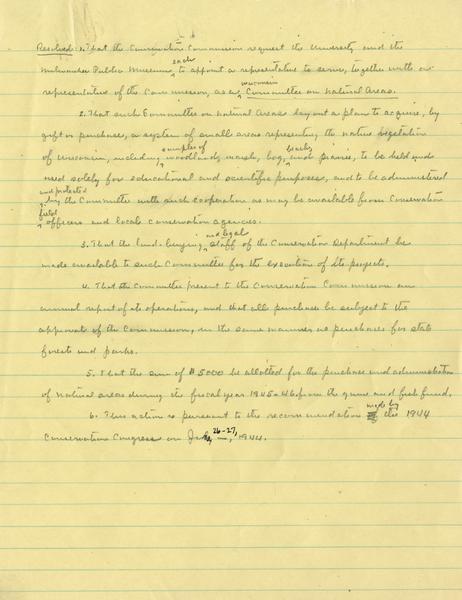 Resolved: 1. That the Conservation Commission request the University and the
Milwaukee Public Museum each to appoint a representative to serve, together with a
representative of the Commission, as a Wisconsin Committee on Natural Areas.
2. That such Committee on Natural Areas lay out a plan to acquire, by
gift or purchase, a system of small areas representing the native vegetation
of Wisconsin, including samples of woodlands, marsh, bog, and prairie, to be held and
used solely for educational and scientific purposes, and to be administered
and protected by the Committee with such cooperation as may be available from Conservation
field officers and local conservation agencies.
3. That the land-buying and legal staff of the Conservation Department be
made available to such Committee for the execution of its projects.
4. That the Committee present to the Conservation Commission an
annual report of its operations, and that all purchases be subject to the
approval of the Commission, in the same manner as purchases for state
forests and parks.
5. That the sum of $5000 be allotted for the purchase and administration
of natural areas during the fiscal year 1945-46 from the game and fish fund.
6. This action is pursuant to the recommendation made by the 1944
Conservation Congress on July 26-27, 1944.